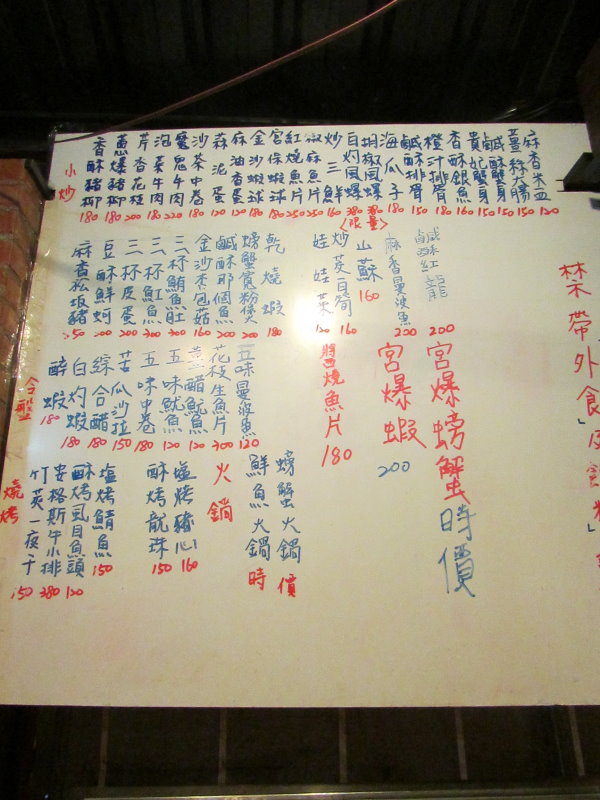 小炒
香酥豬柳 180
蔥爆豬柳 180
芹香花枝 200
泡菜牛肉 180
魔鬼牛肉 180
沙茶中卷 180
蒜泥蛋 120
麻油香蛋 120
金沙蝦球 180
宮保蝦球 180
紅燒魚片 250
椒麻魚片 250
炒三鮮 160
白灼風螺 380
胡椒風螺 380
<限量>
海瓜子 180
鹹酥排骨 150
橙汁排骨 180
香酥銀魚 160
貴妃蟹身 150
鹹酥蟹身 150
薑絲大腸 150
麻香米血 120
麻香松坂豬 250
豆酥鮮蚵 200
三杯皮蛋 200
三杯魟魚 300
三杯鮪魚肚 300
金沙杏包菇 160
鹹酥那個魚 200
螃蟹黃粉煲 200
乾燒蝦 180
娃娃菜 120
炒茭白筍 160
山蘇 160
麻香曼波魚 200
鹹酥紅龍 200
醉蝦 180
白灼蝦 180
綜合醋 180
苦瓜沙拉 150
五味中卷 180
五味魷魚 120
薑醋魷魚 120
花枝生魚片 300
五味曼波魚 120
醬燒魚片 180
宮爆蝦 200
宮爆螃蟹 時價
燒烤
竹莢一夜干 150
安格斯牛小排 380
酥烤虱目魚頭 120
塩烤鯖魚 150
酥烤龍珠 150
塩烤豬心 160
火鍋
鮮魚火鍋 時
螃蟹火鍋 價
禁帶外食